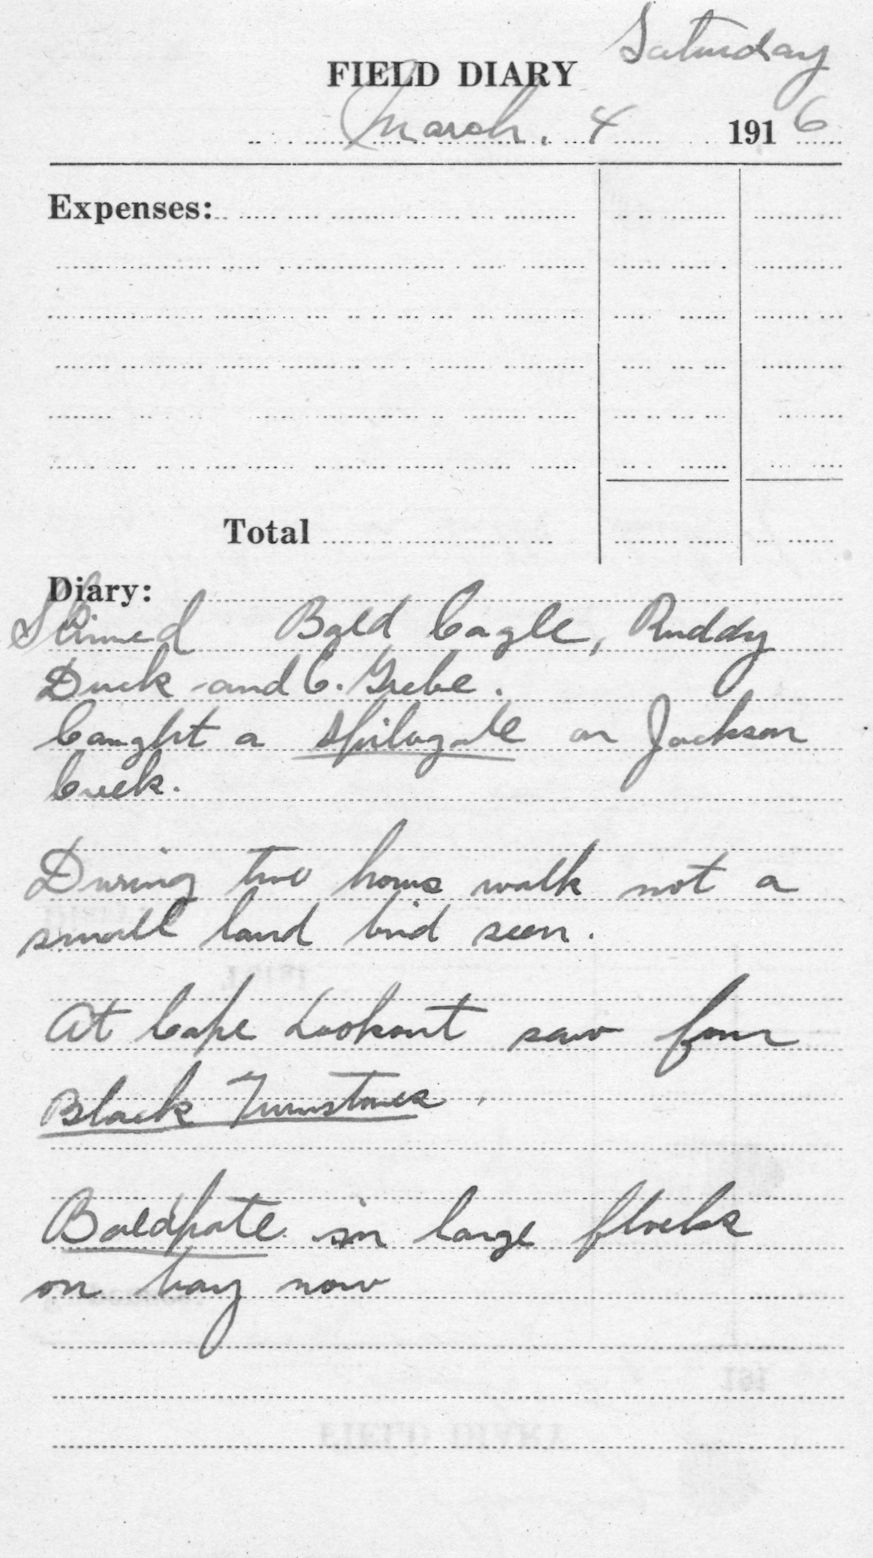 Saturday
FIELD DIARY
March. 4 1916
Expenses:
Total
Diary:
Skinned Bald Eagle, Ruddy
Duck and E. Grebe.
Caught a Spilogale on Jackson
Creek.
During two hours walk not a
small land bird seen.
At Cape Lookout saw four
Black Turnstones.
Baldpate in large flocks
on bay now